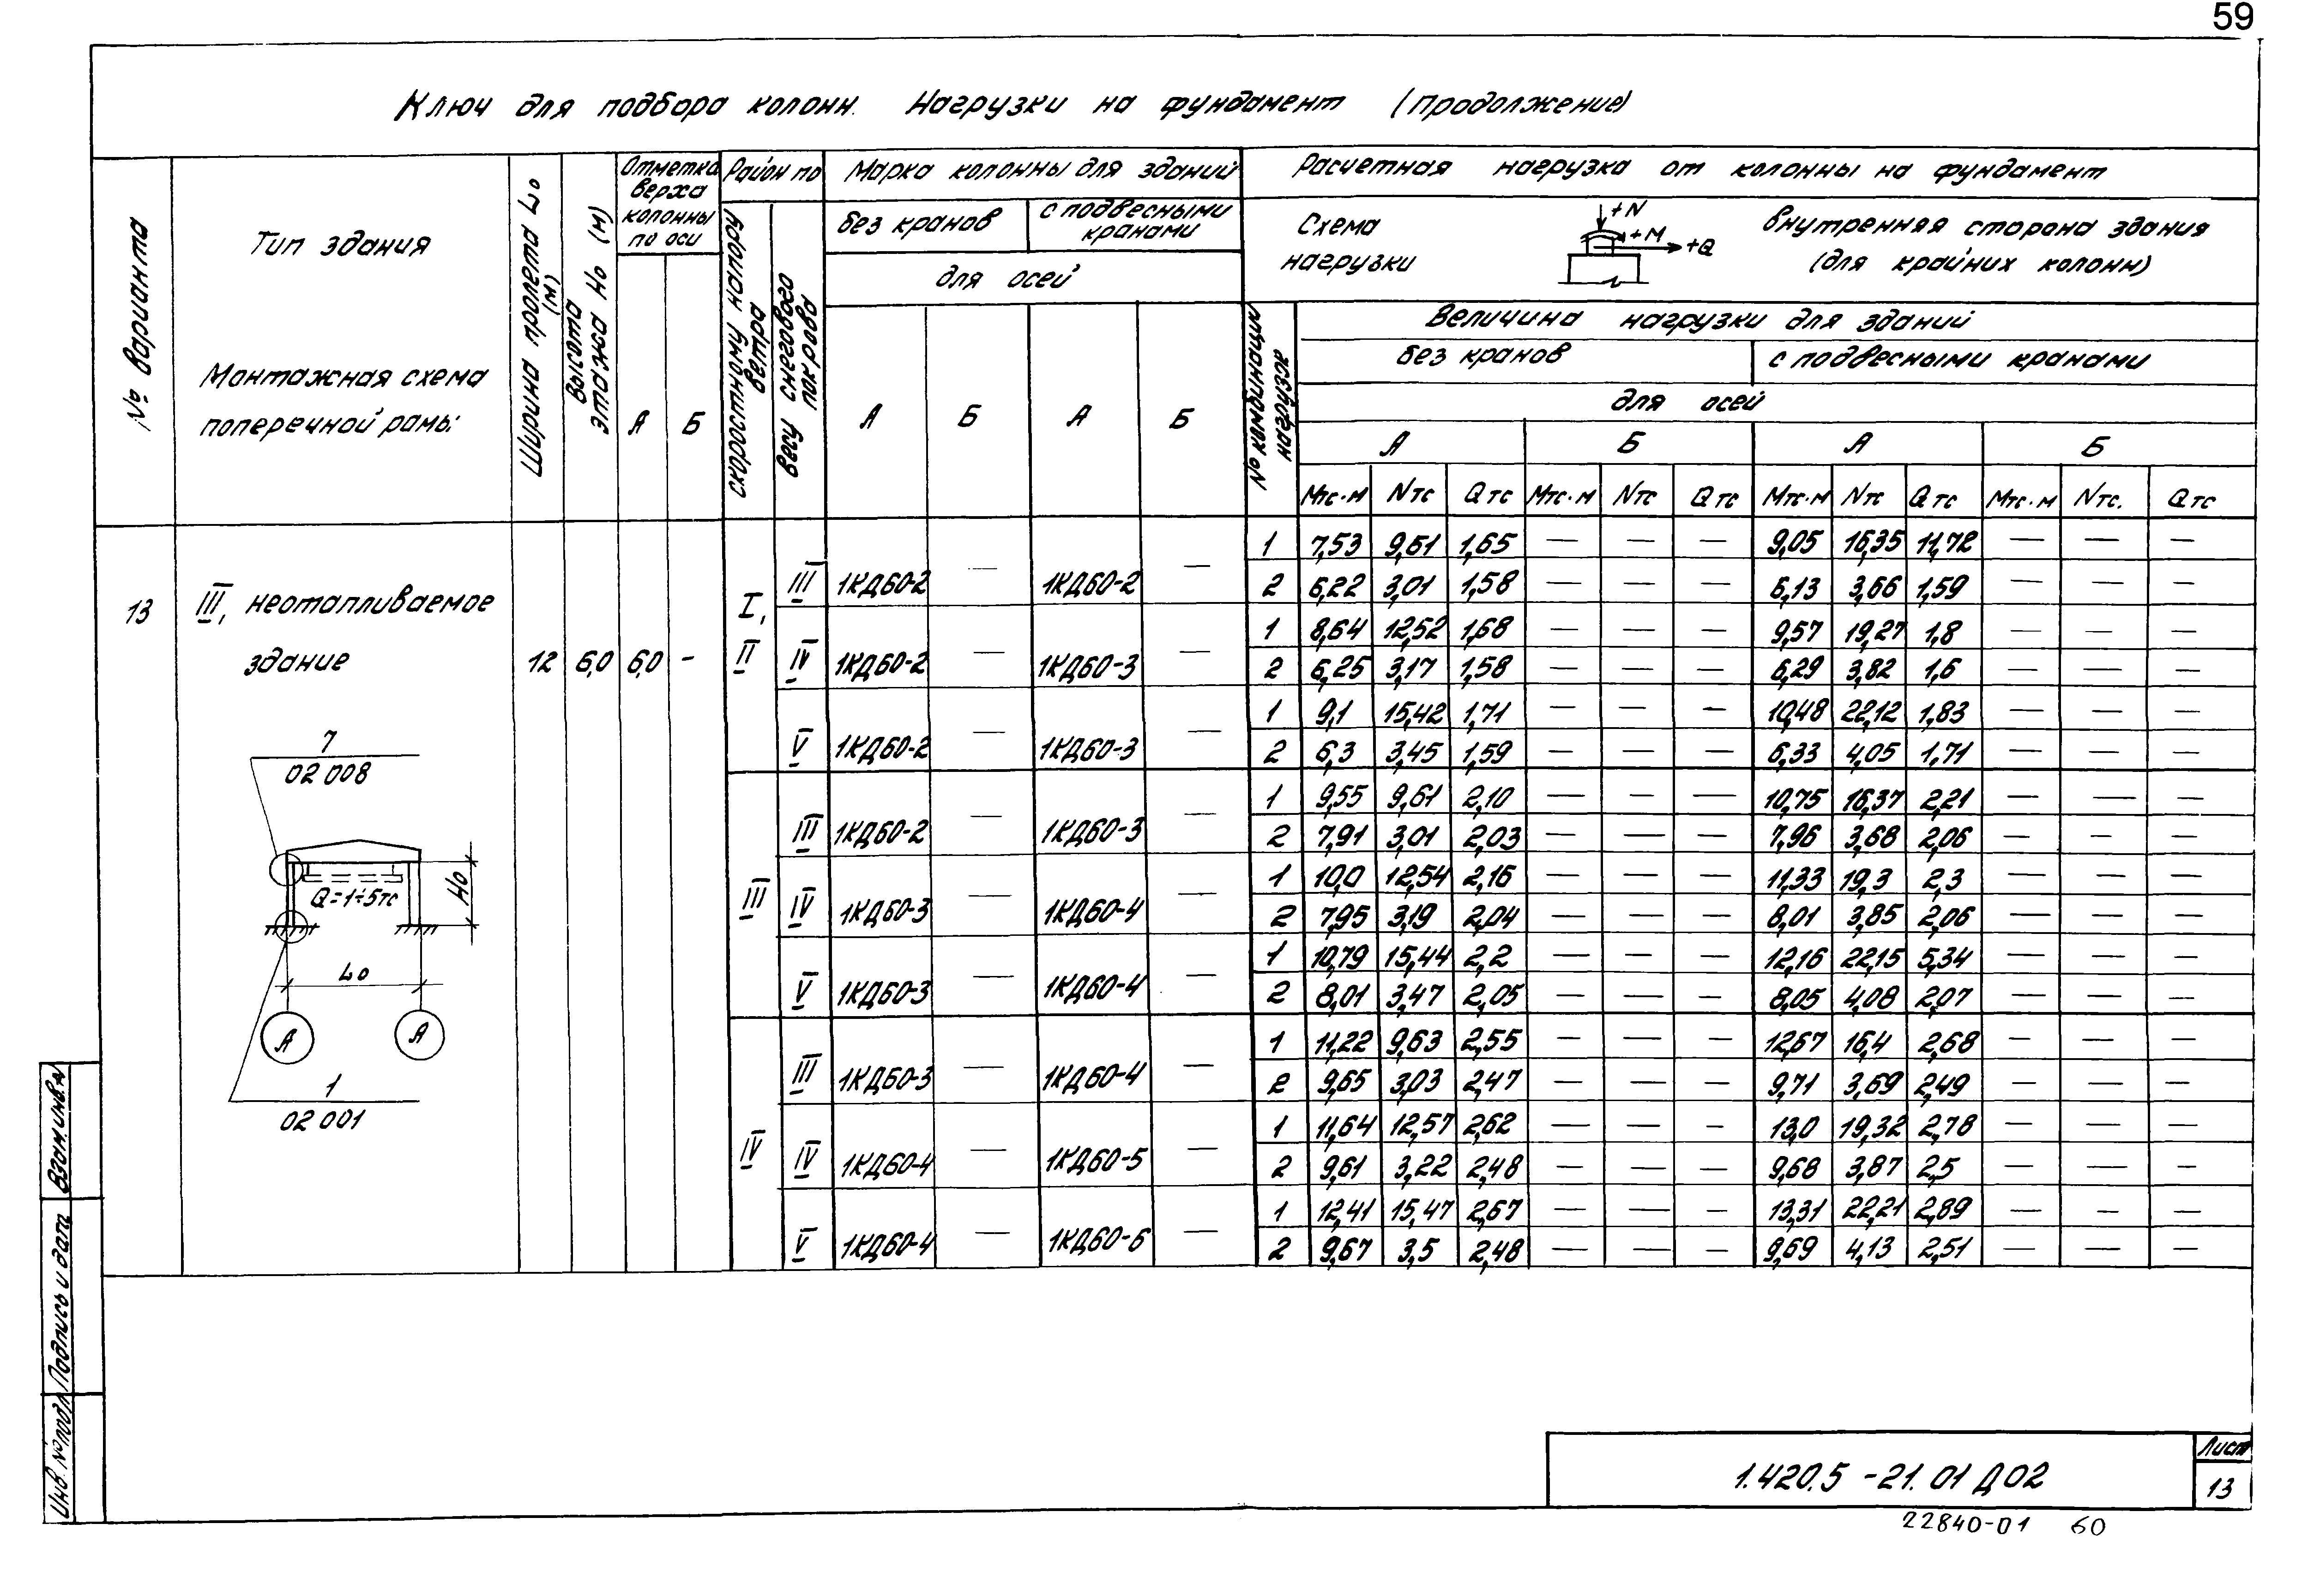 59
Ключ для подбора колонн. Нагрузки на фундамент (продолжение)
№ варианта
Тип здания
Монтажная схема
поперечной рамы
Ширина пролета Lо (м)
Высота этажа Hо (м)
Отметка верха колонны по оси
А Б
Район по
скоростному напору ветра
весу снегового покрова
Марка колонны для зданий
без кранов
с подвесными кранами
для осей
А Б А Б
Расчетная нагрузка от колонны на фундамент
Схема нагрузки
+N
+M
+Q
внутренняя сторона здания
(для крайних колонн)
№ комбинации нагрузок
Величина нагрузки для зданий
без кранов с подвесными кранами
для осей
А Б А Б
Мтс·м Nтс Qтс Мтс·м Nтс Qтс Мтс·м Nтс Qтс Мтс·м Nтс. Qтс
13
III, неотапливаемое
здание
12 6,0 6,0 -
7
02 008
Q=1÷5тс
Hо
Lо
А А
1
02 001
I, II
III 1КД60-2 — 1КД60-2 —
1 7,53 9,61 1,65 — — — 9,05 16,35 11,72 — — —
2 6,22 3,01 1,58 — — — 6,13 3,66 1,59 — — —
IV 1КД60-2 — 1КД60-3 —
1 8,64 12,52 1,68 — — — 9,57 19,27 1,8 — — —
2 6,25 3,17 1,58 — — — 6,29 3,82 1,6 — — —
V 1КД60-2 — 1КД60-3 —
1 9,1 15,42 1,71 — — — 10,48 22,12 1,83 — — —
2 6,3 3,45 1,59 — — — 6,33 4,05 1,71 — — —
III
III 1КД60-2 — 1КД60-3 —
1 9,55 9,61 2,10 — — — 10,75 16,37 2,21 — — —
2 7,91 3,01 2,03 — — — 7,96 3,68 2,06 — — —
IV 1КД60-3 — 1КД60-4 —
1 10,0 12,54 2,16 — — — 11,33 19,3 2,3 — — —
2 7,95 3,19 2,04 — — — 8,01 3,85 2,06 — — —
V 1КД60-3 — 1КД60-4 —
1 10,79 15,44 2,2 — — — 12,16 22,15 5,34 — — —
2 8,01 3,47 2,05 — — — 8,05 4,08 2,07 — — —
IV
III 1КД60-3 — 1КД60-4 —
1 11,22 9,63 2,55 — — — 12,67 16,4 2,68 — — —
2 9,65 3,03 2,47 — — — 9,71 3,69 2,49 — — —
IV 1КД60-4 — 1КД60-5 —
1 11,64 12,57 2,62 — — — 13,0 19,32 2,78 — — —
2 9,61 3,22 2,48 — — — 9,68 3,87 2,5 — — —
V 1КД60-4 — 1КД60-6 —
1 12,41 15,47 2,67 — — — 13,31 22,21 2,89 — — —
2 9,67 3,5 2,48 — — — 9,69 4,13 2,51 — — —
Взам.инв.№
Подпись и дата
Инв. № подл.
1.420.5-21.01 Д02
Лист
13
22840-01 60